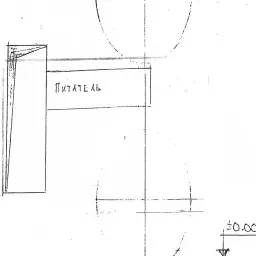 ПИТАТЕЛЬ
±0.00